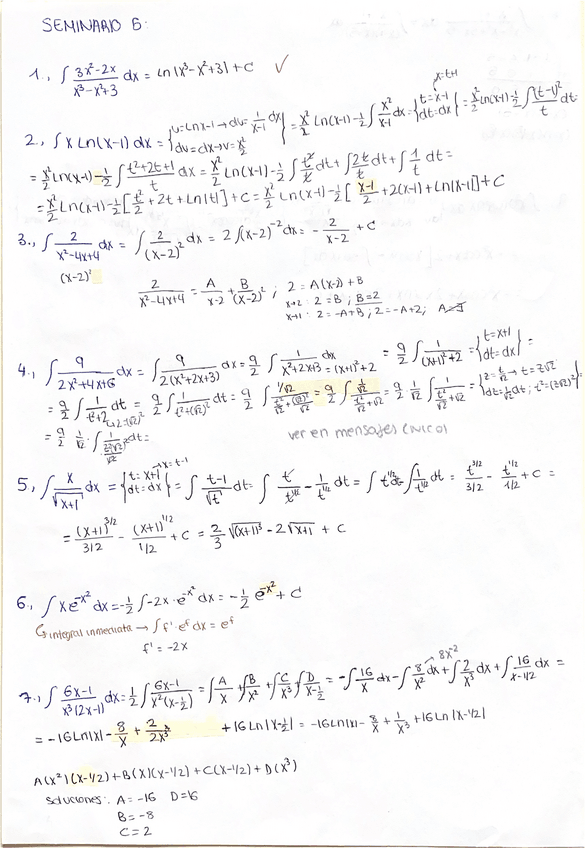 SEMINARIO 5:
1., ∫ (3x²-2x)/(x³-x²+3) dx = ln|x³-x²+3| + C ✓
x=t+1
2., ∫ x Ln(x-1) dx = {u=Lnx-1 → du = 1/(x-1) dx; dv=dx→v=x²/2} = x²/2 Ln(x-1) - 1/2 ∫ x²/(x-1) dx = {t=x-1; dt=dx} = x²/2 Ln(x-1) - 1/2 ∫ (t-1)²/t dt =
= x²/2 Ln(x-1) - 1/2 ∫ (t²+2t+1)/t dx = x²/2 Ln(x-1) - 1/2 ∫ t²/t dt + ∫ 2t/t dt + ∫ 1/t dt =
= x²/2 Ln(x-1) - 1/2 [t²/2 + 2t + Ln|t|] + C = x²/2 Ln(x-1) - 1/2 [(x-1)/2 + 2(x-1) + Ln|x-1|] + C
3., ∫ 2/(x²-4x+4) dx = ∫ 2/(x-2)² dx = 2∫(x-2)⁻² dx = - 2/(x-2) + C
(x-2)²
2/(x²-4x+4) = A/(x-2) + B/(x-2)² ; 2 = A(x-2) + B
x=2 : 2 = B ; B=2
x=1 : 2 = -A+B ; 2 = -A+2 ;
4., ∫ 9/(2x²+4x+6) dx = ∫ 9/(2(x²+2x+3)) dx = 9/2 ∫ 1/(x²+2x+3) dx = 9/2 ∫ 1/((x+1)²+2) = {t=x+1; dt=dx} =
= (x+1)²+2
= 9/2 ∫ 1/(t²+2) dt = 9/2 ∫ 1/(t²+(√2)²) dt = 9/2 ∫ (1/√2)/(t²/√2+(√2)²/√2) = 9/2 ∫ (1/√2)/(t²/√2+√2) = 9/2 1/√2 ∫ 1/(t²/√2+√2) = {z=t/√2 → t=z√2; dt=1/√2 dt; t²=(z√2)²} =
t+2=(√2)²
= 9/2 1/√2 · ∫ dt =
ver en mensajes (Nico)
x=t-1
5., ∫ x/√(x+1) dx = {t=x+1; dt=dx} = ∫ (t-1)/√t dt = ∫ t/t^1/2 - 1/t^1/2 dt = ∫ t^1/2 dt - ∫ 1/t^1/2 dt = t^3/2/(3/2) - t^1/2/(1/2) + C =
= (x+1)^3/2/(3/2) - (x+1)^1/2/(1/2) + C = 2/3 √(x+1)³ - 2√(x+1) + C
6., ∫ x e^-x² dx = -1/2 ∫ -2x · e^-x² dx = -1/2 e^-x² + C
integral inmediata → ∫ f' · e^f dx = e^f
f' = -2x
8x⁻²
7., ∫ (6x-1)/(x³(2x-1)) dx = 1/2 ∫ (6x-1)/(x³(x-1/2)) = ∫ A/x + ∫ B/x² + ∫ C/x³ + ∫ D/(x-1/2) = -∫ 16/x dx - ∫ 8/x² dx + ∫ 2/x³ dx + ∫ 16/(x-1/2) dx =
= -16 Ln|x| - 8/x + 2/2x³ + 16 Ln|x-1/2| = -16Ln|x| - 8/x + 1/x³ + 16 Ln|x-1/2|
A(x²)(x-1/2) + B(x)(x-1/2) + C(x-1/2) + D(x³)
soluciones: A = -16 D=16
B = -8
C = 2